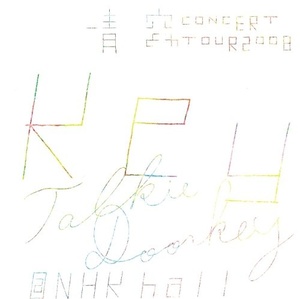 青空 CONCERT TOUR2008
KEY
Talkie Doorkey
@NHK hall